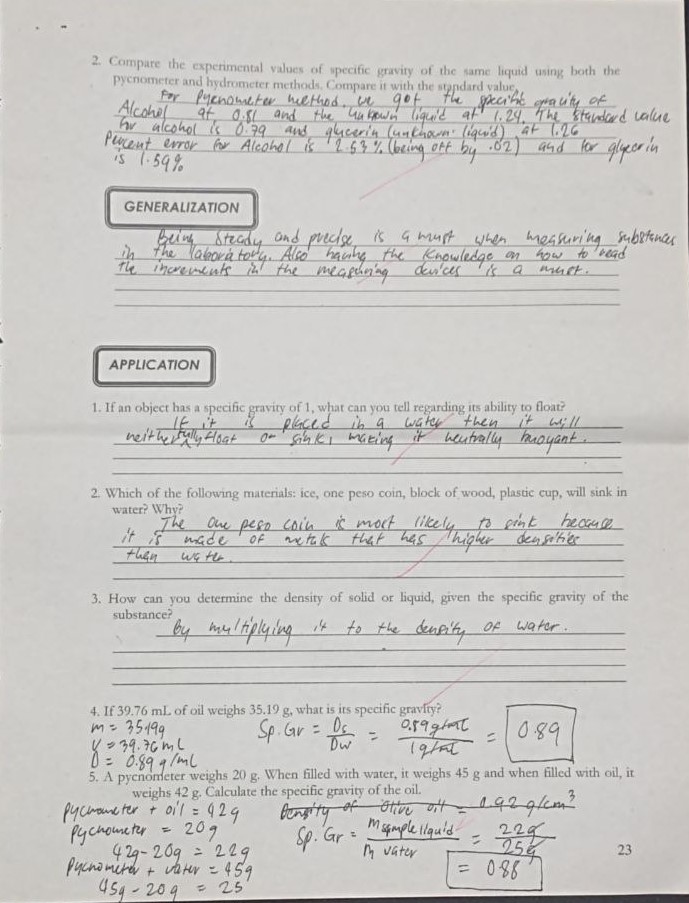 2. Compare the experimental values of specific gravity of the same liquid using both the
pycnometer and hydrometer methods. Compare it with the standard value.
For Pycnometer method, we got the specific gravity of
Alcohol at 0.81 and the unknown liquid at 1.24. The standard value
for alcohol is 0.79 and glycerin (unknown liquid) at 1.26
Percent error for Alcohol is 2.53% (being off by .02) and for glycerin
is 1.59%
GENERALIZATION
Being steady and precise is a must when measuring substances
in the laboratory. Also having the knowledge on how to read
the increments in the measuring devices is a must.
APPLICATION
1. If an object has a specific gravity of 1, what can you tell regarding its ability to float?
If it is placed in a water then it will
neither fully float or sink, making it neutrally buoyant.
2. Which of the following materials: ice, one peso coin, block of wood, plastic cup, will sink in
water? Why?
The one peso coin is most likely to sink because
it is made of metals that has higher densities
than water.
3. How can you determine the density of solid or liquid, given the specific gravity of the
substance?
By multiplying it to the density of water.
4. If 39.76 mL of oil weighs 35.19 g, what is its specific gravity?
m = 35.19g
V = 39.76 mL
D = 0.89 g/mL
Sp. Gr = Ds/Dw = 0.89 g/mL / 1 g/mL = 0.89
5. A pycnometer weighs 20 g. When filled with water, it weighs 45 g and when filled with oil, it
weighs 42 g. Calculate the specific gravity of the oil.
Density of Olive oil = 0.92 g/cm³
Pycnometer + oil = 42g
Pycnometer = 20g
42g - 20g = 22g
Pycnometer + water = 45g
45g - 20g = 25
Sp. Gr = m sample liquid / m water = 22g / 25g
= 0.88
23